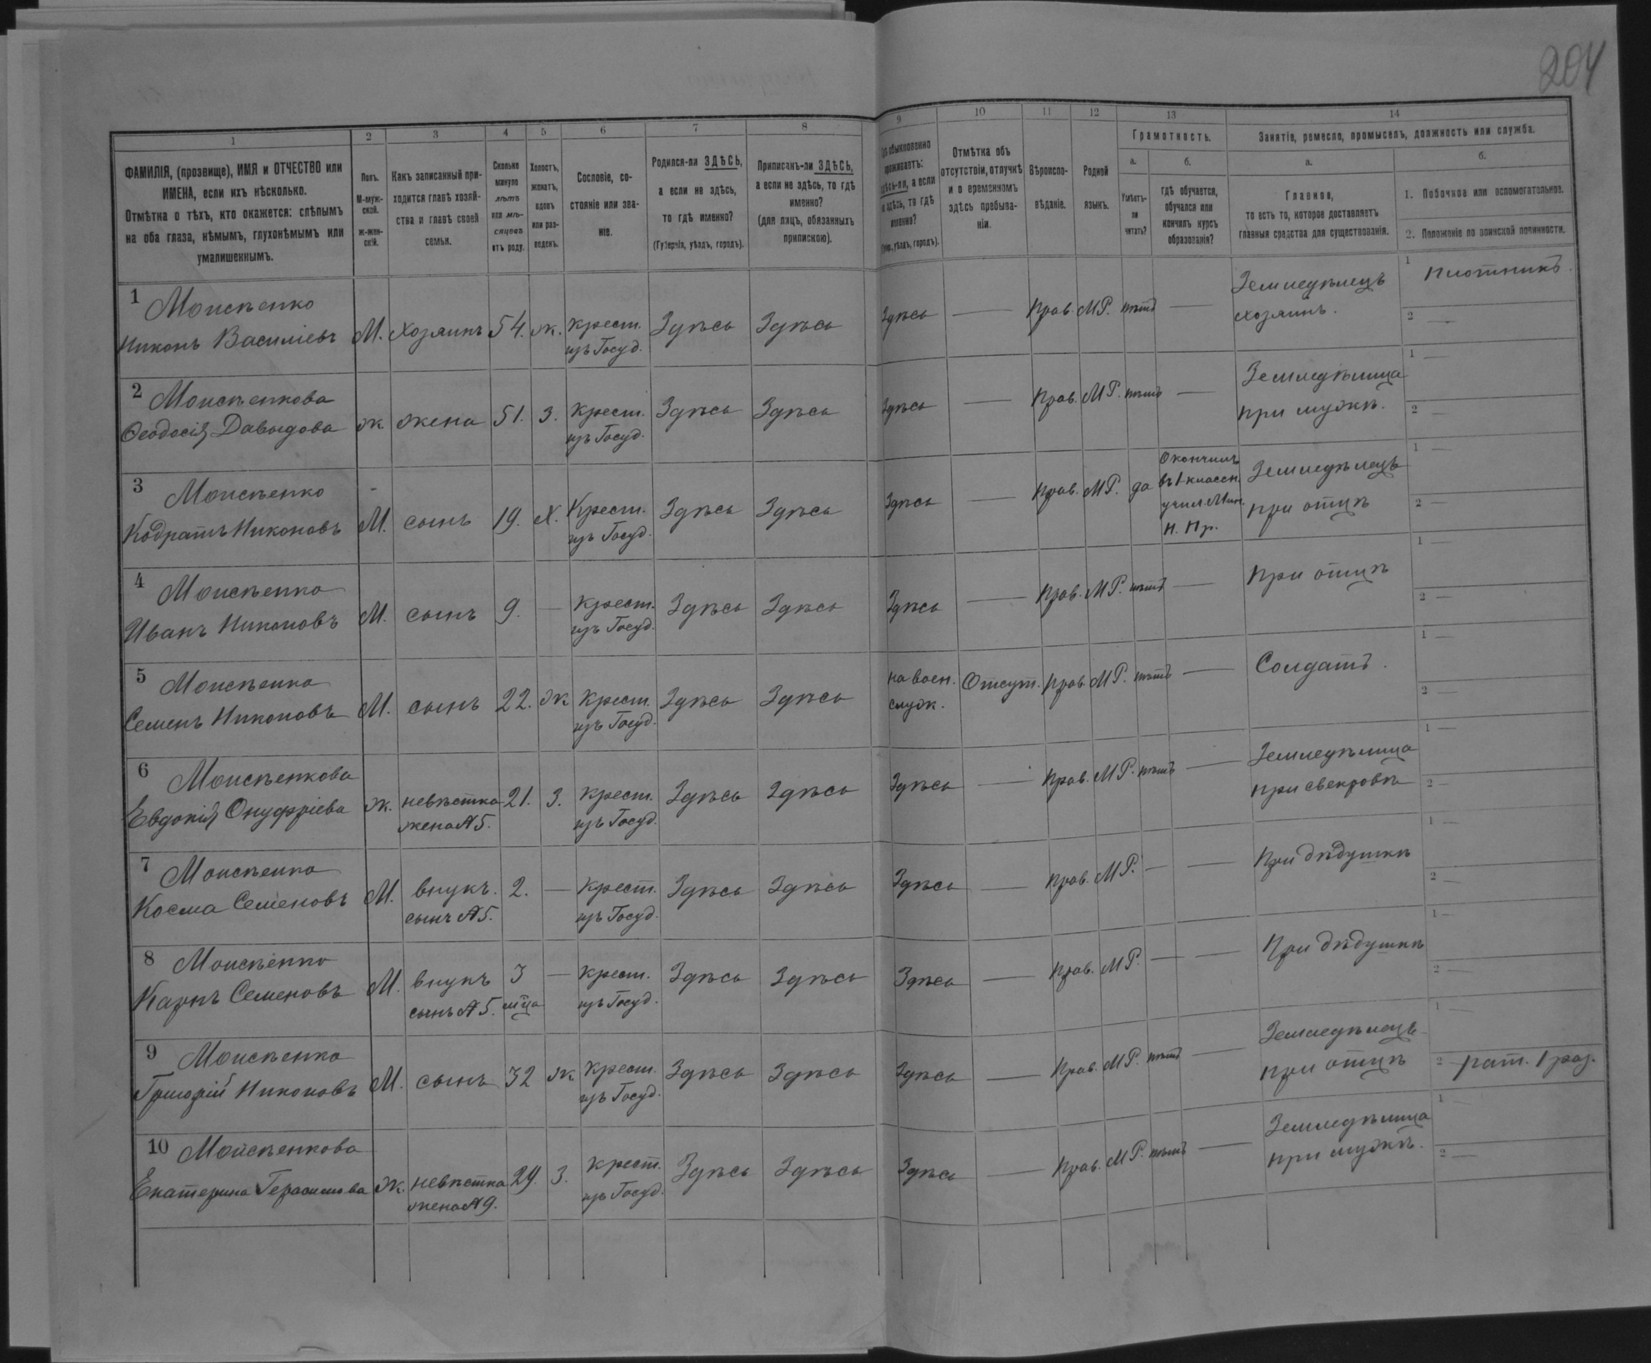 204
1 2 3 4 5 6 7 8 9 10 11 12 13 14
ФАМИЛІЯ, (прозвище), ИМЯ и ОТЧЕСТВО или
ИМЕНА, если ихъ нѣсколько.
Отмѣтка о тѣхъ, кто окажется: слѣпымъ
на оба глаза, нѣмымъ, глухонѣмымъ или
умалишеннымъ.
Полъ.
М-муж-
ской.
ж-жен-
скій.
Какъ записанный при-
ходится главѣ хозяй-
ства и главѣ своей
семьи.
Сколько
минуло
лѣтъ
или мѣ-
сяцевъ
отъ роду.
Холостъ,
женатъ,
вдовъ
или раз-
веденъ.
Сословіе, со-
стояніе или зва-
ніе.
Родился-ли ЗДѢСЬ,
а если не здѣсь,
то гдѣ именно?
(Губернія, уѣздъ, городъ).
Приписанъ-ли ЗДѢСЬ,
а если не здѣсь, то гдѣ
именно?
(для лицъ, обязанныхъ
припискою).
обыкновенно
проживаетъ:
здѣсь-ли, а если
не здѣсь, то гдѣ
именно?
уѣздъ, городъ).
Отмѣтка объ
отсутствіи, отлучкѣ
и о временномъ
здѣсь пребыва-
ніи.
Вѣроиспо-
вѣданіе.
Родной
языкъ.
Грамотность.
а.
Умѣетъ-
ли
читать?
б.
гдѣ обучается,
обучался или
кончилъ курсъ
образованія?
Занятіе, ремесло, промыселъ, должность или служба.
а.
Главное,
то есть то, которое доставляетъ
главныя средства для существованія.
б.
1. Побочное или вспомогательное.
2. Положеніе по воинской повинности.
1 Моисѣенко
Никонъ Василіевъ М. хозяинъ 54. ж. крест. изъ Госуд. Здѣсь Здѣсь Здѣсь — Прав. МР. нѣтъ — Земледѣлецъ хозяинъ. 1 плотникъ. 2 —
2 Моисѣенкова
Ѳеодосія Давыдова ж жена 51. З. Крест. изъ Госуд. Здѣсь Здѣсь Здѣсь — Прав. МР. нѣтъ — Земледѣлица при мужѣ. 1 — 2 —
3 Моисѣенко
Кодратъ Никоновъ М. сынъ 19. Х. Крест. изъ Госуд. Здѣсь Здѣсь Здѣсь — Прав. МР. да Окончилъ въ 1-классн. учил. Мин. Н. Пр. Земледѣлецъ при отцѣ 1 — 2 —
4 Моисѣенко
Иванъ Никоновъ М. сынъ 9. — Крест. изъ Госуд. Здѣсь Здѣсь Здѣсь — Прав. МР. нѣтъ — При отцѣ 1 — 2 —
5 Моисѣенко
Семенъ Никоновъ М. сынъ 22. ж Крест. изъ Госуд. Здѣсь Здѣсь на воен. служ. Отсут. Прав МР. нѣтъ — Солдатъ. 1 — 2 —
6 Моисѣенкова
Евдокія Онуфріева ж. невѣстка жена №5. 21. З. Крест. изъ Госуд. Здѣсь Здѣсь Здѣсь — Прав. МР. нѣтъ — Земледѣлица при свекровѣ 1 — 2 —
7 Моисѣенко
Косма Семеновъ М. внукъ. сынъ №5. 2. — Крест. изъ Госуд. Здѣсь Здѣсь Здѣсь — Прав. МР. — — При дѣдушкѣ 1 — 2 —
8 Моисѣенко
Карпъ Семеновъ М. внукъ сынъ №5. 3 м-ца — Крест. изъ Госуд. Здѣсь Здѣсь Здѣсь — Прав. МР. — — При дѣдушкѣ 1 — 2 —
9 Моисѣенко
Григорій Никоновъ М. сынъ 32 ж Крест. изъ Госуд. Здѣсь Здѣсь Здѣсь — Прав. МР. нѣтъ — Земледѣлецъ при отцѣ 1 — 2 — рат. 1 раз.
10 Моисѣенкова
Екатерина Герасимова ж. невѣстка жена №9. 29. З. Крест. изъ Госуд. Здѣсь Здѣсь Здѣсь — Прав. МР. нѣтъ — Земледѣлица при мужѣ. 1 — 2 —